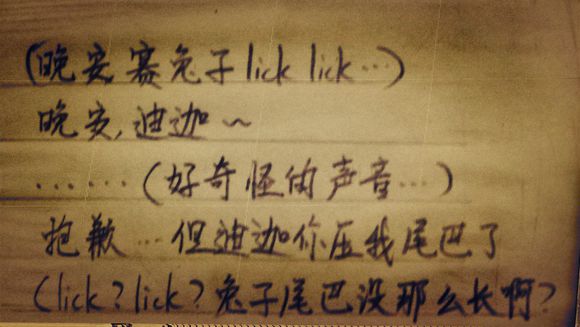 (晚安赛兔子lick lick…)
晚安,迪迦~
……(好奇怪的声音…)
抱歉…但迪迦你压我尾巴了
(lick?lick?兔子尾巴没那么长啊?